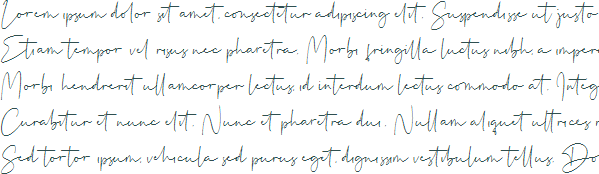 Lorem ipsum dolor sit amet, consectetur adipiscing elit. Suspendisse ut justo
Etiam tempor vel risus nec pharetra. Morbi fringilla luctus nibh, a imper
Morbi hendrerit ullamcorper lectus, id interdum lectus commodo at. Integ
Curabitur et nunc elit. Nunc et pharetra dui. Nullam aliquet ultrices
Sed tortor ipsum, vehicula sed purus eget, dignissim vestibulum tellus. Do